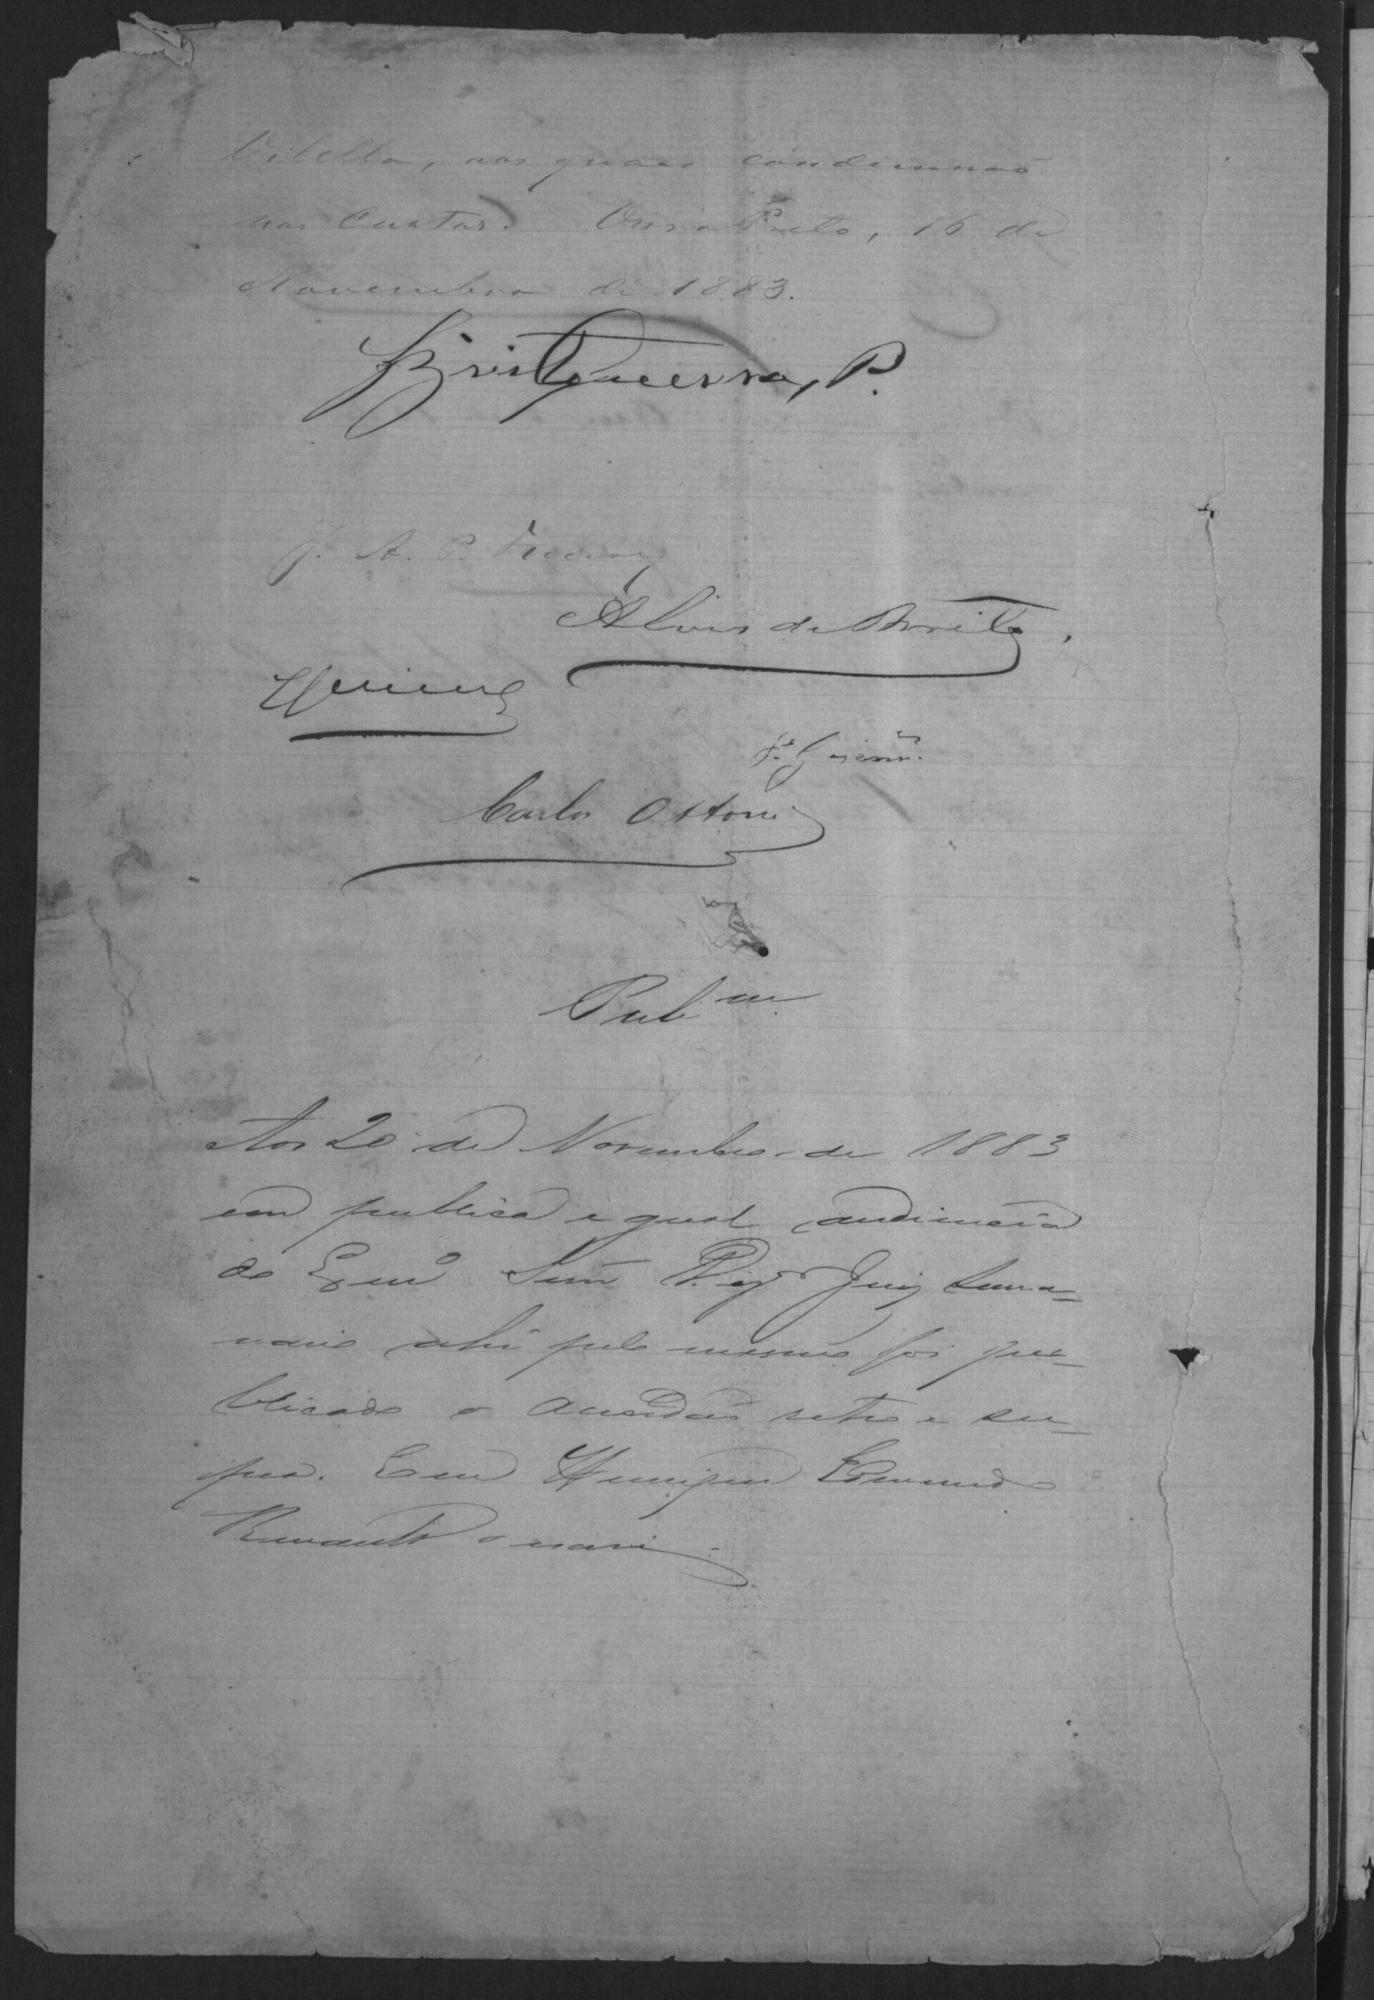 Vilella, aos quaes condemnão
nas Custas. Ouro Preto, 16 de
Novembro de 1883.
Brito Guerra, P.
J. A. P.
Alves de Brito,
Carlos Ottoni
Pub.m
Aos 20 de Novembro de 1883
em publica e geral audiencia
do Exmo Snr Dez.or Juiz Sema=
nario ahi pelo mesmo foi pu=
blicado o accordão retro e su=
pra. Eu Henrique Edmundo
Renault o escrevi